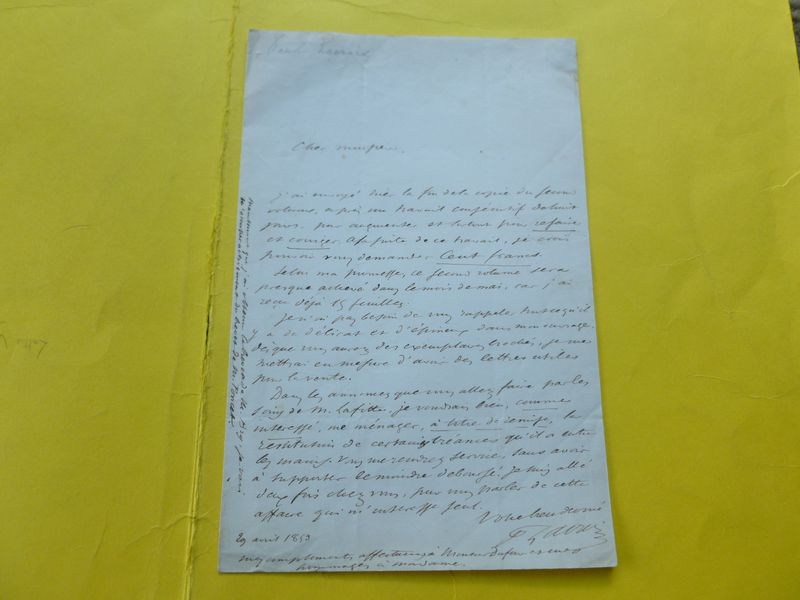 Paul Lacroix
Cher monsieur,
J'ai envoyé hier la fin de la copie du second
volume, après un travail consécutif de huit
jours, pour augmenter et surtout pour refaire
et corriger. A la suite de ce travail, je crois
pouvoir vous demander Cent francs.
Selon ma promesse, ce second volume sera
presque achevé dans le mois de mai, car j'ai
reçu déjà 15 feuilles.
Je n'ai pas besoin de vous rappeler tout ce qu'il
y a de délicat et d'épineux dans mon ouvrage.
Dès que vous aurez des exemplaires brochés, je me
mettrai en mesure d'avoir des lettres utiles
pour la vente.
Dans les annonces que vous allez faire par les
soins de M. Lafitte, je voudrais bien, comme
intéressé, me ménager, à titre de remise, la
restitution de certaines créances qu'il a entre
les mains. Vous me rendrez service, sans avoir
à supporter le moindre déboursé. Je suis allé
deux fois chez vous, pour vous parler de cette
affaire qui m'intéresse seul.
Votre bien dévoué
29 avril 1853
mes compliments affectueux à Monsieur Dufour et mes
hommages à madame.
Maintenant que j'ai